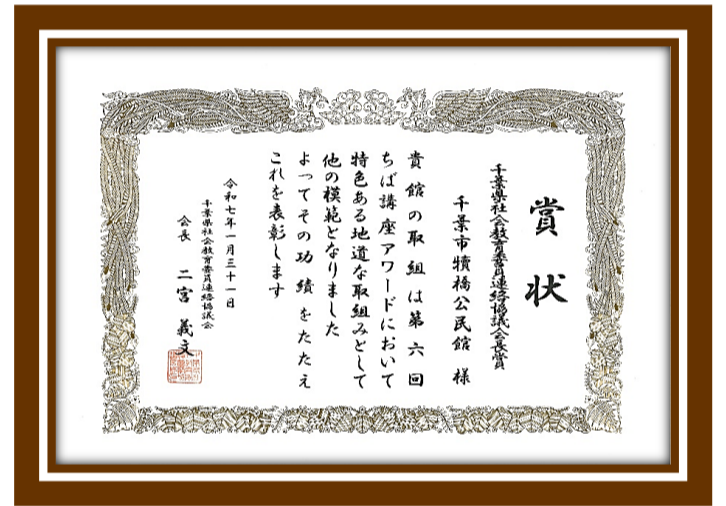 賞状
千葉県社会教育委員連絡協議会会長賞
千葉市犢橋公民館 様
貴館の取組は第六回
ちば講座アワードにおいて
特色ある地道な取組みとして
他の模範となりました
よってその功績をたたえ
これを表彰します
令和七年一月三十一日
千葉県社会教育委員連絡協議会
会長 二宮 義文